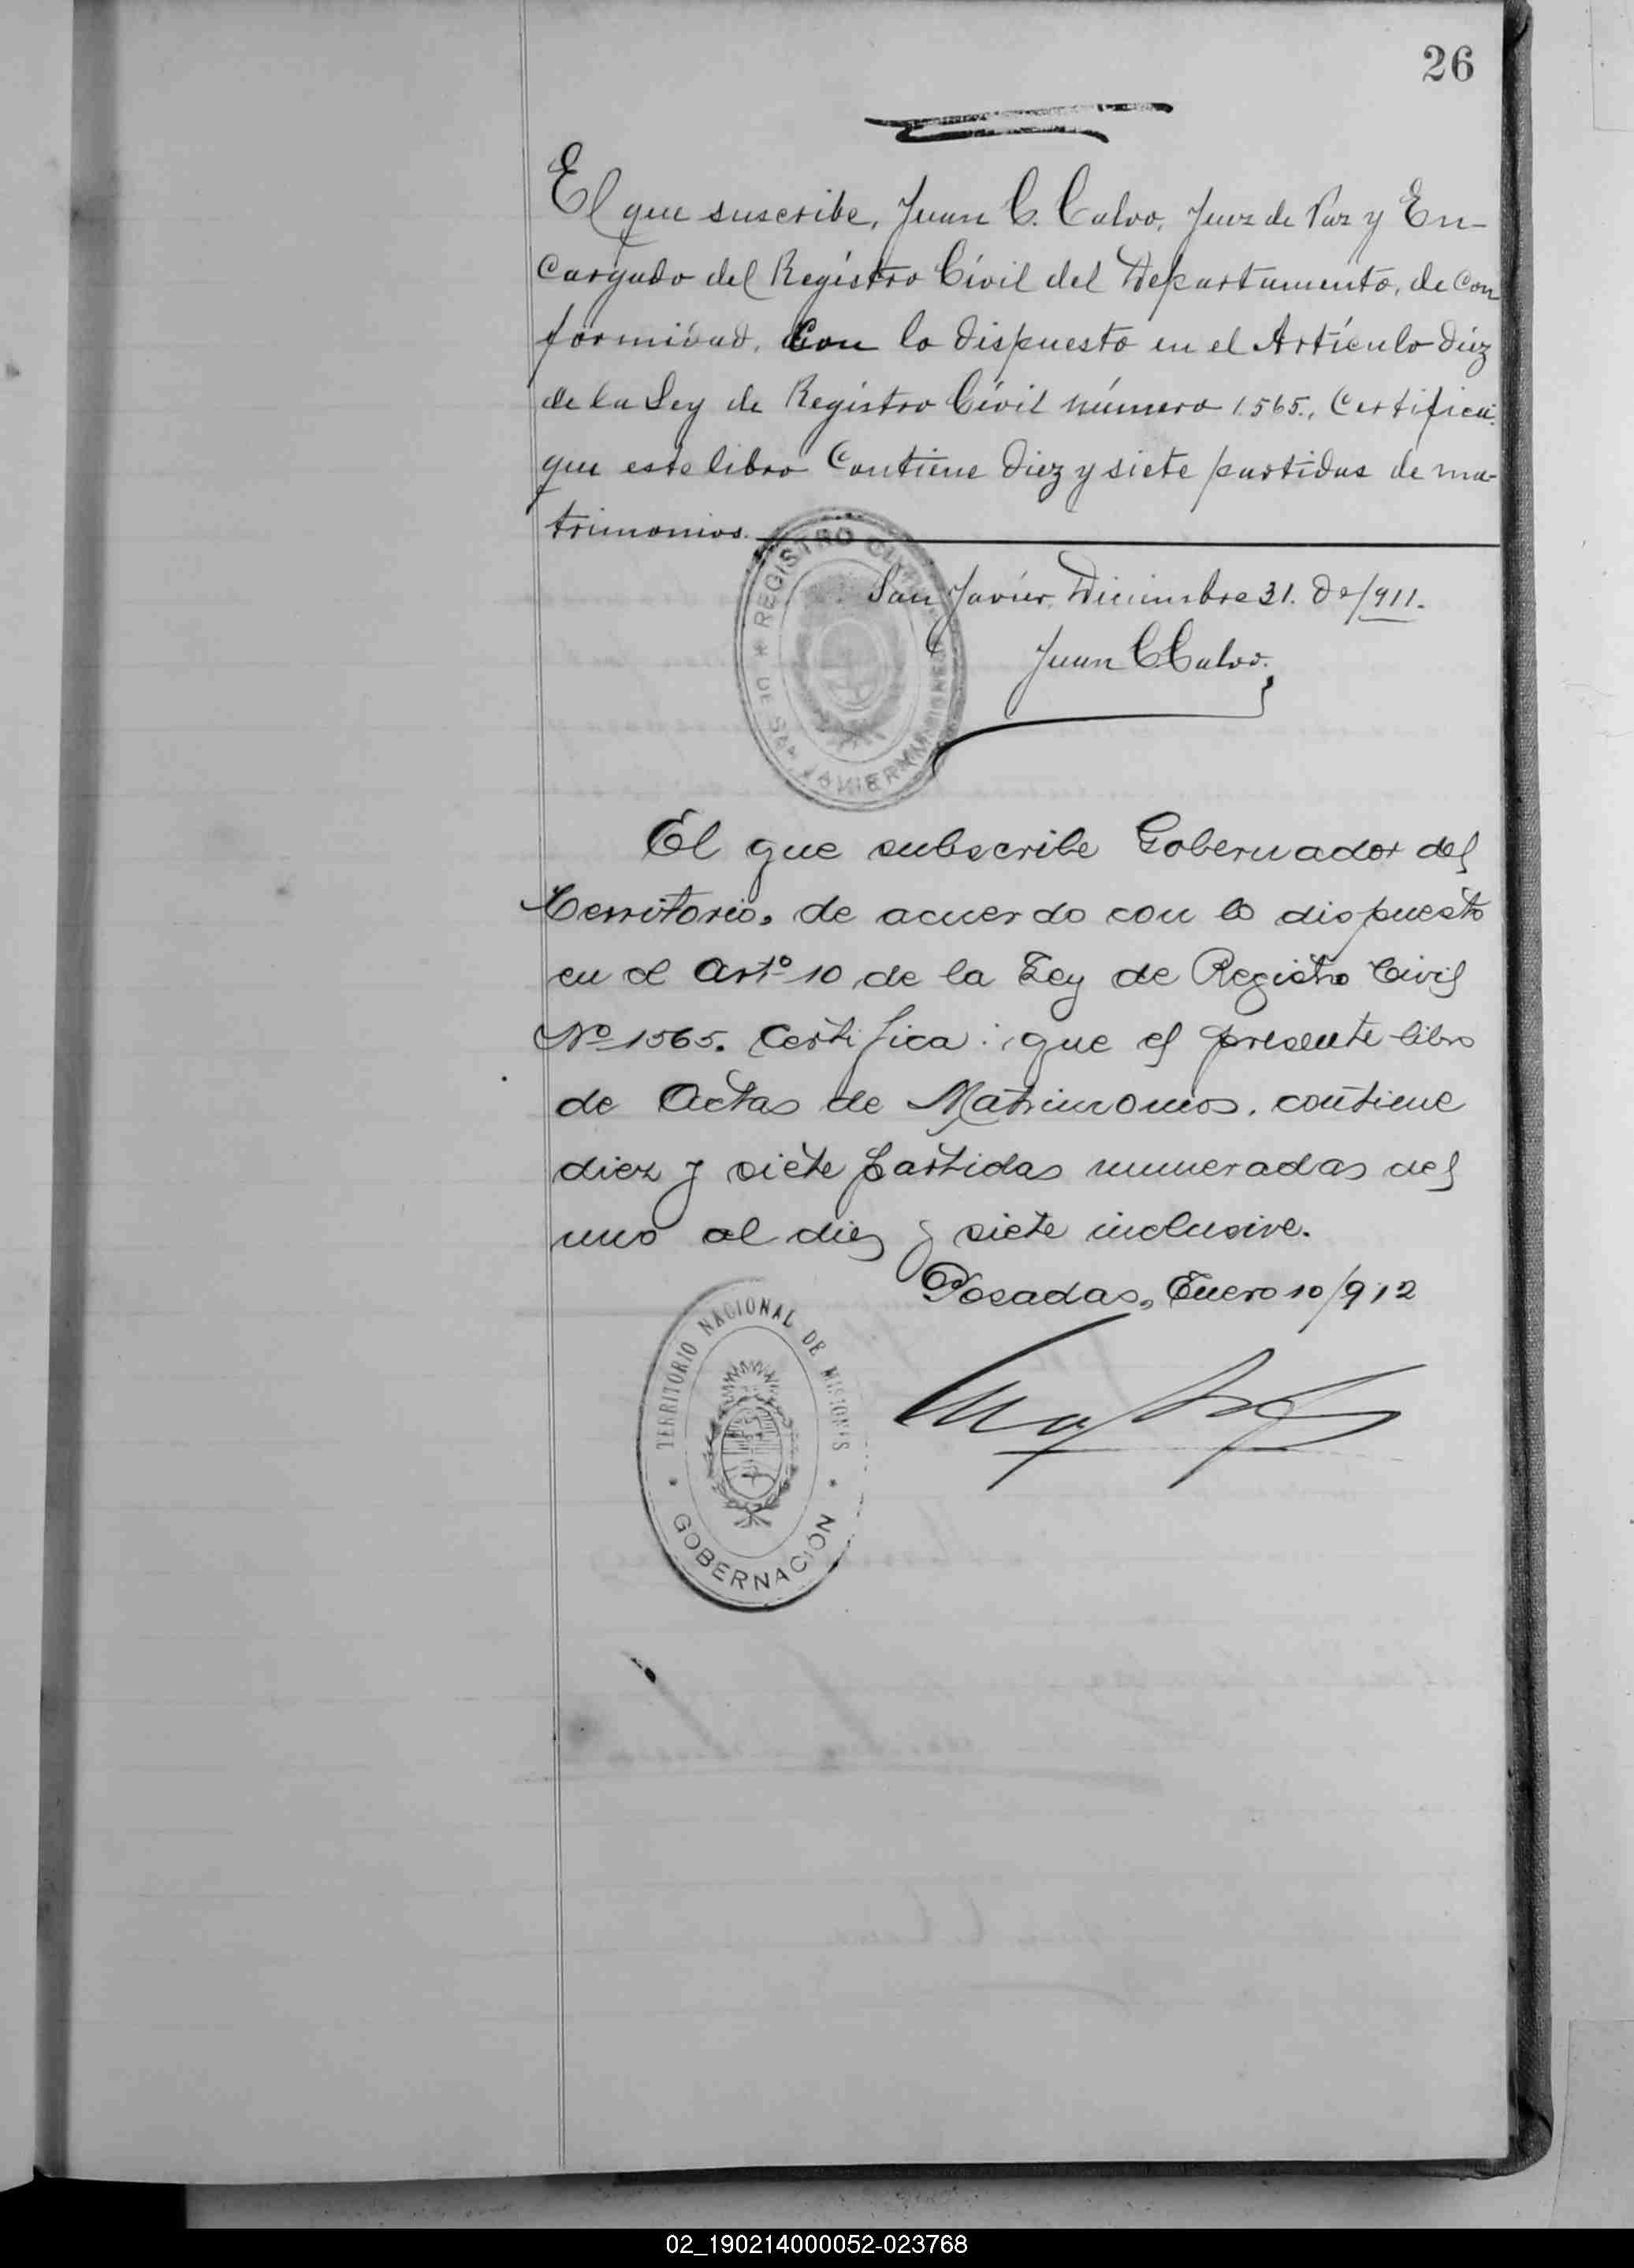 26
El que suscribe, Juan C. Calvo, Juez de Paz y En-
cargado del Registro Civil del Departamento, de con
formidad, con lo dispuesto en el Artículo diez
de la Ley de Registro Civil número 1.565., Certifica:
que este libro contiene diez y siete partidas de ma-
trimonios.
San Javier, Diciembre 31. de/911.
Juan C Calvo.
REGISTRO CIVIL
* DE SAN JAVIER MISIONES
El que subscribe Gobernador del
Territorio, de acuerdo con lo dispuesto
en el Artº 10 de la Ley de Registro Civil
Nº 1565. Certifica: que el presente libro
de Actas de Matrimonios, contiene
diez y siete partidas numeradas del
uno al diez y siete inclusive.
Posadas, Enero 10/912
TERRITORIO NACIONAL DE MISIONES
* GOBERNACIÓN *
02_190214000052-023768